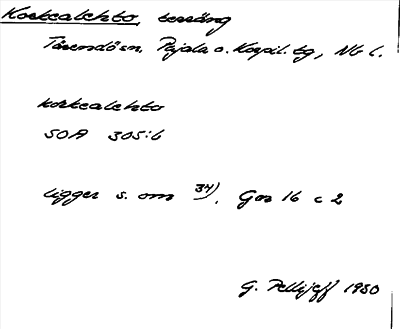 Korkealehto, terräng
Tärendö sn, Pajala o. Korpil. tg, Nb l.
korkealehto
SOA 305:6
ligger s. om 34). Gor 16 c 2
G. Pellijeff 1980